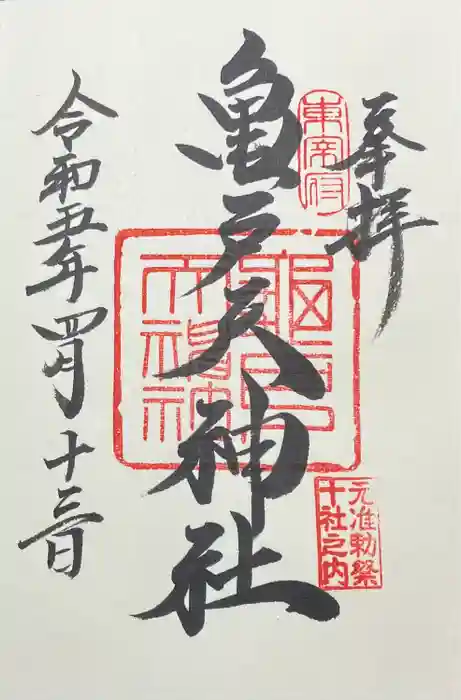 奉拝
東宰府
亀戸天神社
龜戸
天神社
元准勅祭
十社之内
令和五年四月十三日